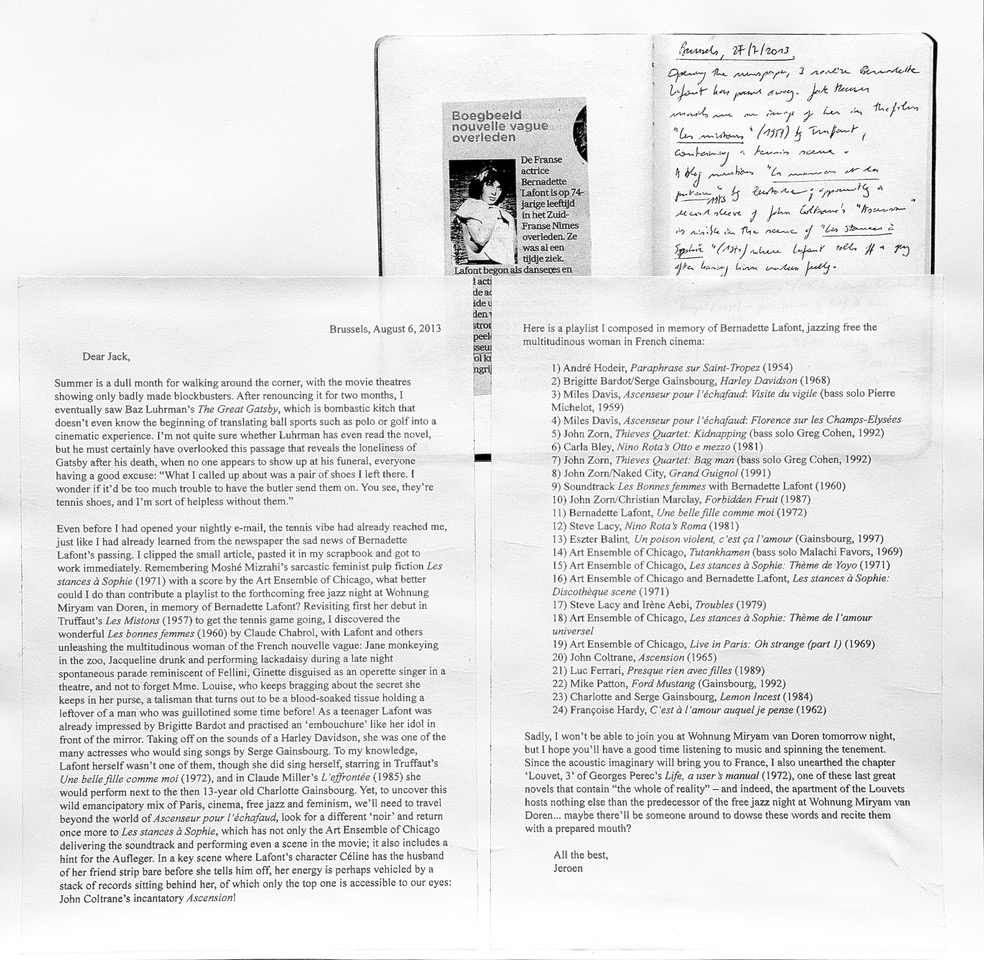 Boegbeeld
nouvelle vague
overleden
De Franse
actrice
Bernadette
Lafont is op 74-
jarige leeftijd
in het Zuid-
Franse Nîmes
overleden. Ze
was al een
tijdje ziek.
Lafont begon als danseres en
Brussels, 27/7/2013
Opening the newspaper, I realize Bernadette
Lafont has passed away. Jack
mails me an image of her in the film
"Les mistons" (1957) by Truffaut,
containing a tennis scene.
A blog mentions "La maman et la
putain" by Eustache; apparently a
1973
record sleeve of John Coltrane's "Ascension"
is visible in the scene of "Les stances à
Sophie" (1970) where Lafont tells off a guy
after having him undress fully.
Brussels, August 6, 2013
Dear Jack,
Summer is a dull month for walking around the corner, with the movie theatres
showing only badly made blockbusters. After renouncing it for two months, I
eventually saw Baz Luhrman's The Great Gatsby, which is bombastic kitch that
doesn't even know the beginning of translating ball sports such as polo or golf into a
cinematic experience. I'm not quite sure whether Luhrman has even read the novel,
but he must certainly have overlooked this passage that reveals the loneliness of
Gatsby after his death, when no one appears to show up at his funeral, everyone
having a good excuse: "What I called up about was a pair of shoes I left there. I
wonder if it'd be too much trouble to have the butler send them on. You see, they're
tennis shoes, and I'm sort of helpless without them."
Even before I had opened your nightly e-mail, the tennis vibe had already reached me,
just like I had already learned from the newspaper the sad news of Bernadette
Lafont's passing. I clipped the small article, pasted it in my scrapbook and got to
work immediately. Remembering Moshé Mizrahi's sarcastic feminist pulp fiction Les
stances à Sophie (1971) with a score by the Art Ensemble of Chicago, what better
could I do than contribute a playlist to the forthcoming free jazz night at Wohnung
Miryam van Doren, in memory of Bernadette Lafont? Revisiting first her debut in
Truffaut's Les Mistons (1957) to get the tennis game going, I discovered the
wonderful Les bonnes femmes (1960) by Claude Chabrol, with Lafont and others
unleashing the multitudinous woman of the French nouvelle vague: Jane monkeying
in the zoo, Jacqueline drunk and performing lackadaisy during a late night
spontaneous parade reminiscent of Fellini, Ginette disguised as an operette singer in a
theatre, and not to forget Mme. Louise, who keeps bragging about the secret she
keeps in her purse, a talisman that turns out to be a blood-soaked tissue holding a
leftover of a man who was guillotined some time before! As a teenager Lafont was
already impressed by Brigitte Bardot and practised an 'embouchure' like her idol in
front of the mirror. Taking off on the sounds of a Harley Davidson, she was one of the
many actresses who would sing songs by Serge Gainsbourg. To my knowledge,
Lafont herself wasn't one of them, though she did sing herself, starring in Truffaut's
Une belle fille comme moi (1972), and in Claude Miller's L'effrontée (1985) she
would perform next to the then 13-year old Charlotte Gainsbourg. Yet, to uncover this
wild emancipatory mix of Paris, cinema, free jazz and feminism, we'll need to travel
beyond the world of Ascenseur pour l'échafaud, look for a different 'noir' and return
once more to Les stances à Sophie, which has not only the Art Ensemble of Chicago
delivering the soundtrack and performing even a scene in the movie; it also includes a
hint for the Aufleger. In a key scene where Lafont's character Céline has the husband
of her friend strip bare before she tells him off, her energy is perhaps vehicled by a
stack of records sitting behind her, of which only the top one is accessible to our eyes:
John Coltrane's incantatory Ascension!
Here is a playlist I composed in memory of Bernadette Lafont, jazzing free the
multitudinous woman in French cinema:
1) André Hodeir, Paraphrase sur Saint-Tropez (1954)
2) Brigitte Bardot/Serge Gainsbourg, Harley Davidson (1968)
3) Miles Davis, Ascenseur pour l'échafaud: Visite du vigile (bass solo Pierre
Michelot, 1959)
4) Miles Davis, Ascenseur pour l'échafaud: Florence sur les Champs-Elysées
5) John Zorn, Thieves Quartet: Kidnapping (bass solo Greg Cohen, 1992)
6) Carla Bley, Nino Rota's Otto e mezzo (1981)
7) John Zorn, Thieves Quartet: Bag man (bass solo Greg Cohen, 1992)
8) John Zorn/Naked City, Grand Guignol (1991)
9) Soundtrack Les Bonnes femmes with Bernadette Lafont (1960)
10) John Zorn/Christian Marclay, Forbidden Fruit (1987)
11) Bernadette Lafont, Une belle fille comme moi (1972)
12) Steve Lacy, Nino Rota's Roma (1981)
13) Eszter Balint, Un poison violent, c'est ça l'amour (Gainsbourg, 1997)
14) Art Ensemble of Chicago, Tutankhamen (bass solo Malachi Favors, 1969)
15) Art Ensemble of Chicago, Les stances à Sophie: Thème de Yoyo (1971)
16) Art Ensemble of Chicago and Bernadette Lafont, Les stances à Sophie:
Discothèque scene (1971)
17) Steve Lacy and Irène Aebi, Troubles (1979)
18) Art Ensemble of Chicago, Les stances à Sophie: Thème de l'amour
universel
19) Art Ensemble of Chicago, Live in Paris: Oh strange (part I) (1969)
20) John Coltrane, Ascension (1965)
21) Luc Ferrari, Presque rien avec filles (1989)
22) Mike Patton, Ford Mustang (Gainsbourg, 1992)
23) Charlotte and Serge Gainsbourg, Lemon Incest (1984)
24) Françoise Hardy, C'est à l'amour auquel je pense (1962)
Sadly, I won't be able to join you at Wohnung Miryam van Doren tomorrow night,
but I hope you'll have a good time listening to music and spinning the tenement.
Since the acoustic imaginary will bring you to France, I also unearthed the chapter
'Louvet, 3' of Georges Perec's Life, a user's manual (1972), one of these last great
novels that contain "the whole of reality" – and indeed, the apartment of the Louvets
hosts nothing else than the predecessor of the free jazz night at Wohnung Miryam van
Doren... maybe there'll be someone around to dowse these words and recite them
with a prepared mouth?
All the best,
Jeroen